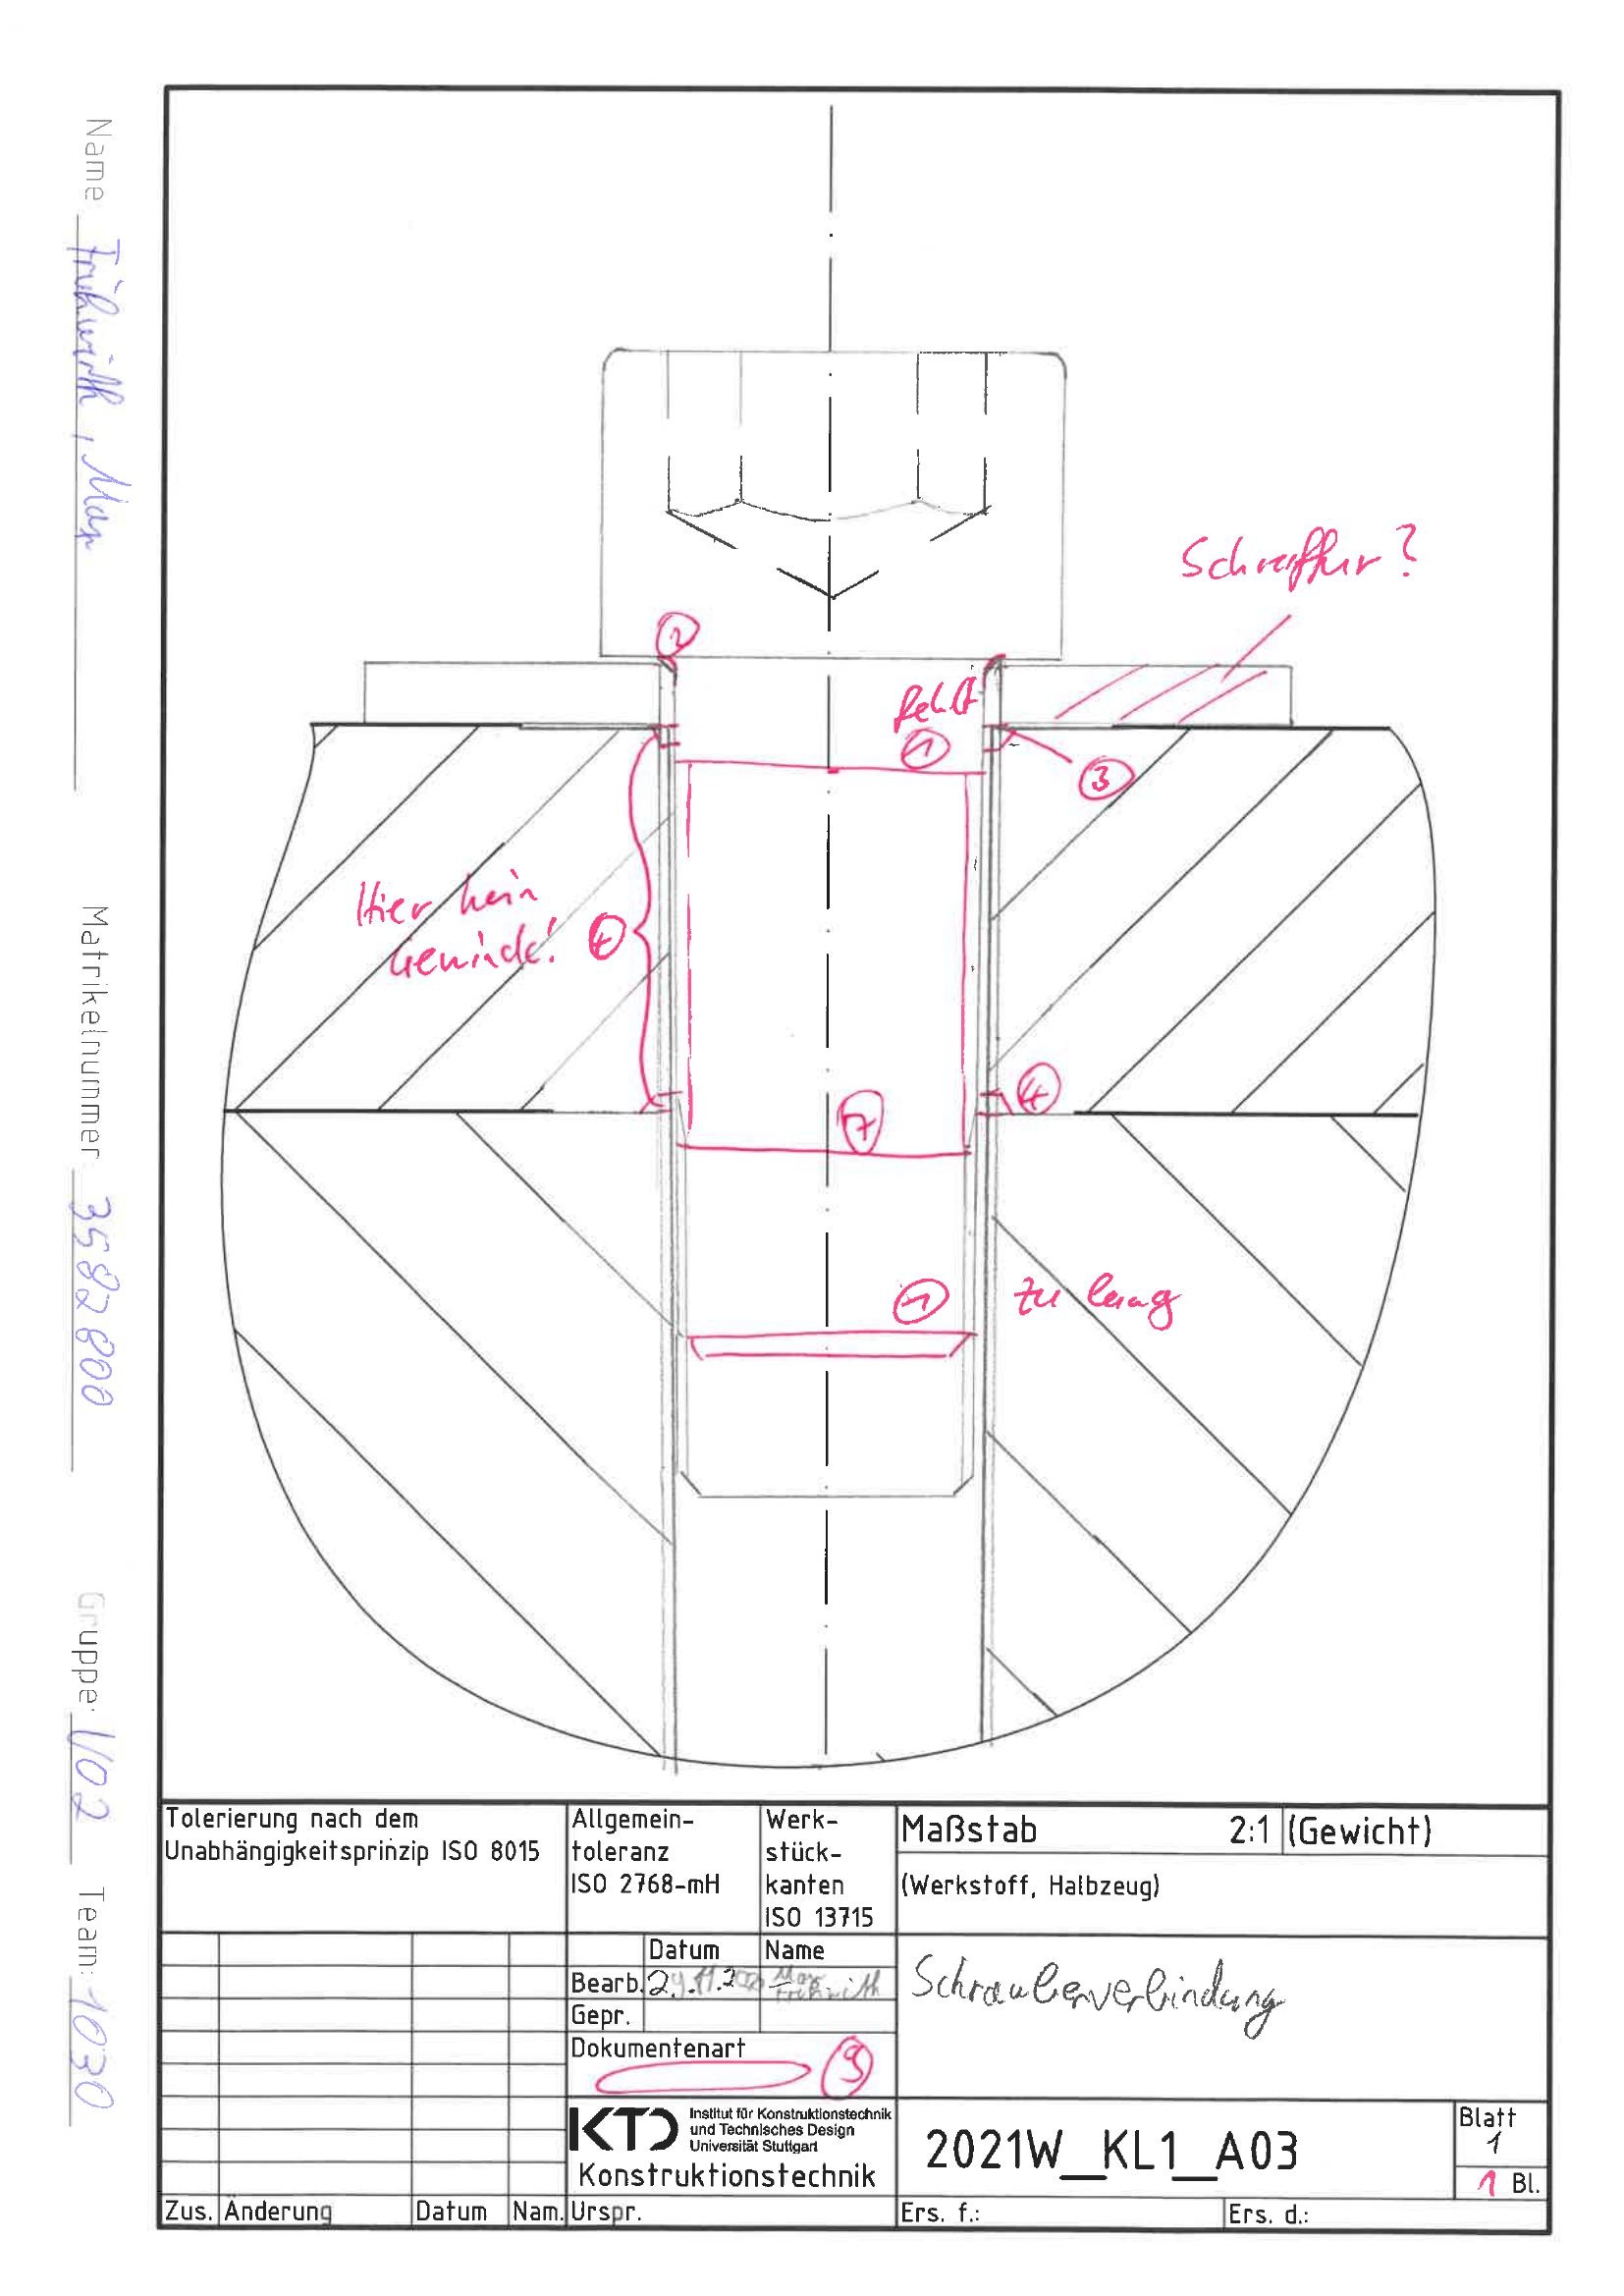 Name Frühwirth, Max
Matrikelnummer 3582800
Gruppe: 1/02 Team: 1030
Schraffur?
2
fehlt
1
3
Hier kein
Gewinde!
4
4
7
1
zu lang
Tolerierung nach dem
Unabhängigkeitsprinzip ISO 8015
Allgemein-
toleranz
ISO 2768-mH
Werk-
stück-
kanten
ISO 13715
Maßstab 2:1 (Gewicht)
(Werkstoff, Halbzeug)
Datum Name
Bearb. 29.11.20 Max
Frühwirth
Gepr.
Dokumentenart
9
Schraubenverbindung
KTD Institut für Konstruktionstechnik
und Technisches Design
Universität Stuttgart
Konstruktionstechnik
2021W_KL1_A03
Blatt
1
1 Bl.
Zus. Änderung Datum Nam. Urspr. Ers. f.: Ers. d.: